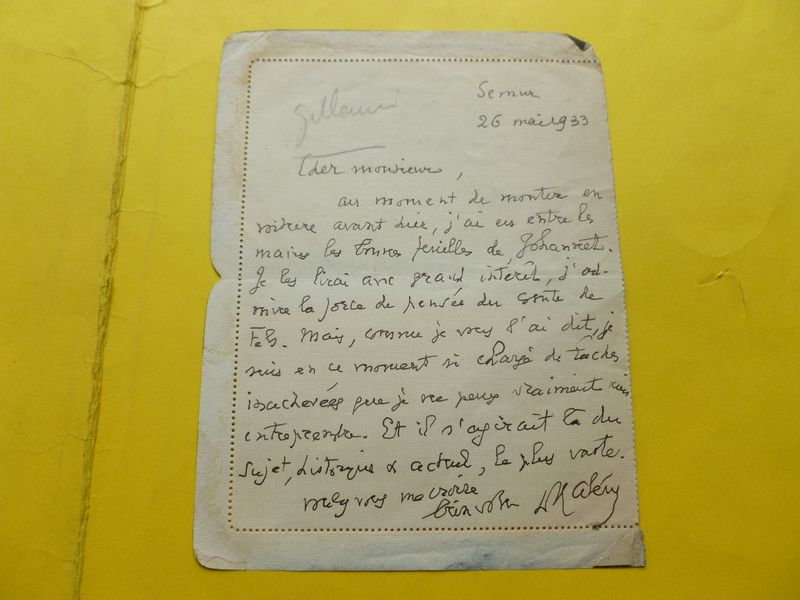 Semur
26 mai 1933
Cher monsieur,
au moment de monter en
voiture avant hier, j'ai eu entre les
mains les bonnes feuilles de Johannet.
Je les lirai avec grand intérêt, j'ad-
mire la force de pensée du comte de
Fels. Mais, comme je vous l'ai dit, je
suis en ce moment si chargé de tâches
inachevées que je ne peux vraiment rien
entreprendre. Et il s'agirait là du
sujet, historique & actuel, le plus vaste.
veuillez vous me croire
bien vôtre D Halévy